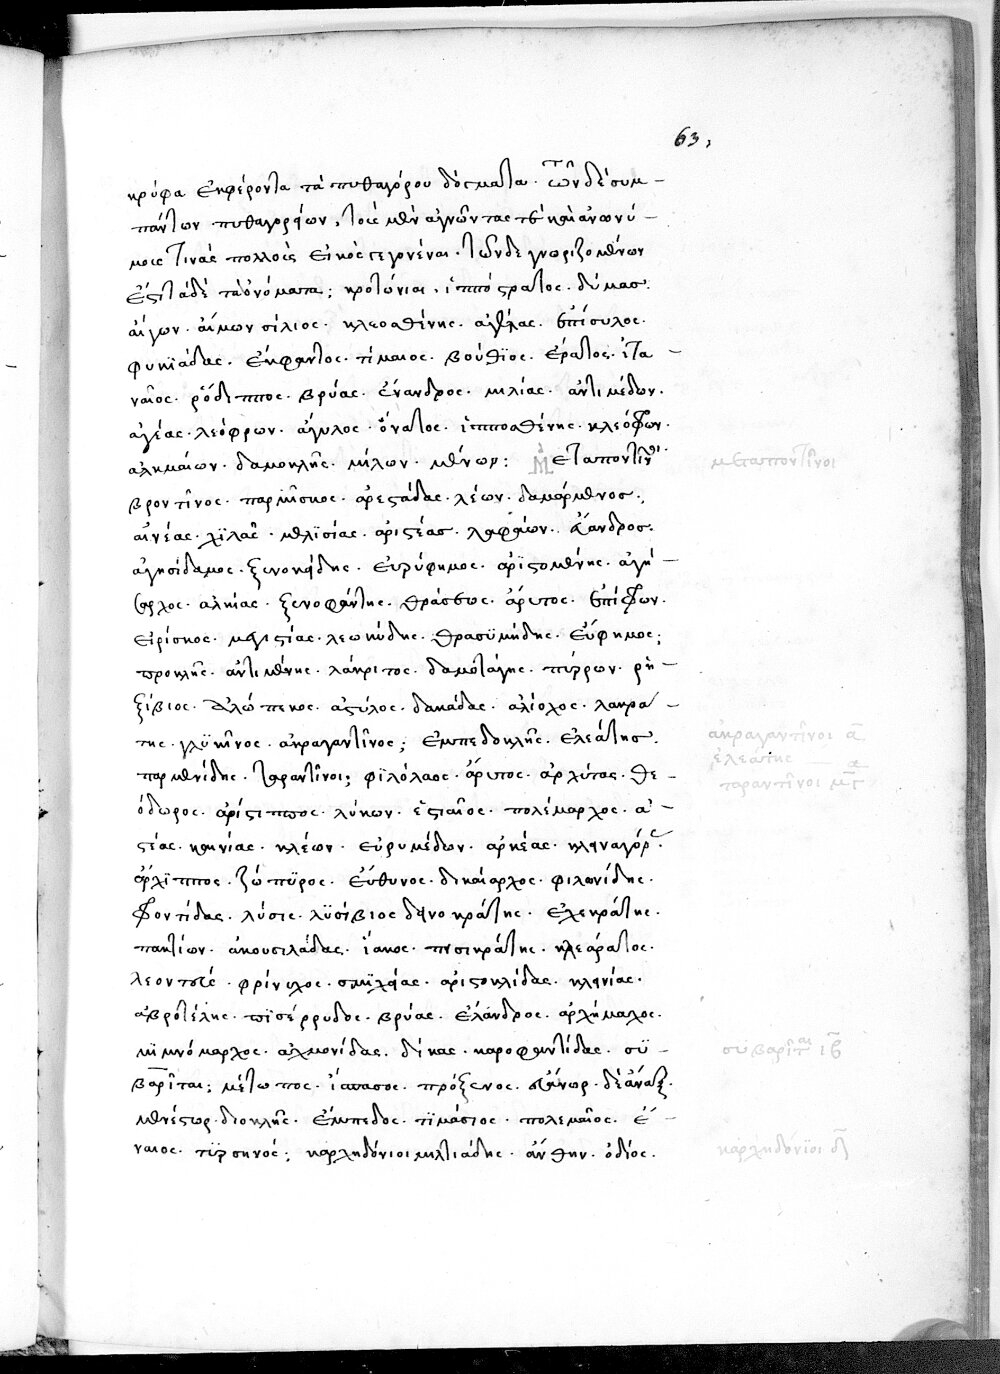 63,
κρύφα ἐκφέροντα τὰ πυθαγόρου δόγματα. τῶν δὲ συμ-
πάντων πυθαγορείων, τοὺς μὲν ἀγνῶντας τε καὶ ἀνωνύ-
μους τινὰς πολλοὺς εἰκὸς γεγονέναι. τῶν δὲ γνωριζομένων
ἐςὶ τάδε τὰ ὀνόματα; κροτώνιαι, ἱππόςρατος. δύμας.
αἴγων. αἵμων σύλιος. κλεοσθένης. ἀγέλας. ἐπίσυλος.
φυκϊάδας. ἔκφαντος. τίμαιος. βούθϊος. ἔρατος. ἰτα-
ναῖος. ῥόδιππος. βρύας. ἔνανδρος. μιλίας. ἀντιμέδων.
ἀγέας. λεόφρων. ἄγυλος. ὄνατος. ἱπποσθένης. κλεόφων.
ἀλκμαίων. δαμοκλῆς. μίλων. μένων: Μεταποντῖνοι
βροντῖνος. παρμῖσκος. ἀρεςάδας. λέων. δαμάρμενος.
αἰνέας. χϊλᾶς. μελϊσίας. ἀριςέας. λαφάων. εὔανδρος.
ἀγησίδαμος. ξενοκάδης. εὐρύφημος. ἀρϊςομένης. ἀγή-
σαρχος. ἀλκίας. ξενοφάντης. θράσεος. ἄρυτος. ἐπίφων.
εἰρίσκος. μεγιςίας. λεωκύδης. θρασϋμήδης. εὔφημος;
προκλῆς. ἀντιμένης. λάκριτος. δαμοτάγης. πύρρων. ῥη-
ξίβιος. ἀλώπεκος. ἀςύλος. δακάδας. ἀλίοχος. λακρα-
της. γλϋκῖνος. ἀκραγαντῖνος; ἐμπεδοκλῆς. ἐλεάτης.
παρμενίδης. ταραντῖνοι; φϊλόλαος. ἄρυτος. ἀρχύτας. θε-
όδωρος. ἀρίςιππος. λύκων. ἑςιαῖος. πολέμαρχος. ἀ-
ςίας. καινίας. κλέων. εὐρυμέδων. ἀρκέας. κλιναγόρας.
ἄρχϊππος. ζώπϋρος. εὔθυνος. δικαίαρχος. φιλωνίδης.
φοντίδας. λύσις. λϋσίβιος δεινοκράτης. ἐχεκράτης.
πακτίων. ἀκουσιλάδας. ἴακος. πισικράτης. κλεάρατος.
λεοντεύς. φρίνιχος. σμϊχέας. ἀριςοκλίδας. κλινίας.
ἁβροτέλης. πϊσέρρυδος. βρύας. ἐλάνδρος. ἀρχήμαχος.
μϊμνόμαρχος. ἀχμονίδας. δίκας. καροφαντίδας. σϋ-
βαρῖται; μέτωπος. ἵππασος. πρόξενος. εὐάνωρ. δεάναξ.
μενέςωρ. διοκλῆς. ἔμπεδος. τϊμάσιος. πολεμαῖος. ἔ-
ναιος. τϋρσηνός; καρχηδόνιοι μιλτιάδης. ἄνθην. ὁδίος.
μεταποντῖνοι
ἀκραγαντῖνοι α
ἐλεάτης α
ταραντῖνοι μγ
συβαρῖται ιβ
καρχηδόνϊοι δ